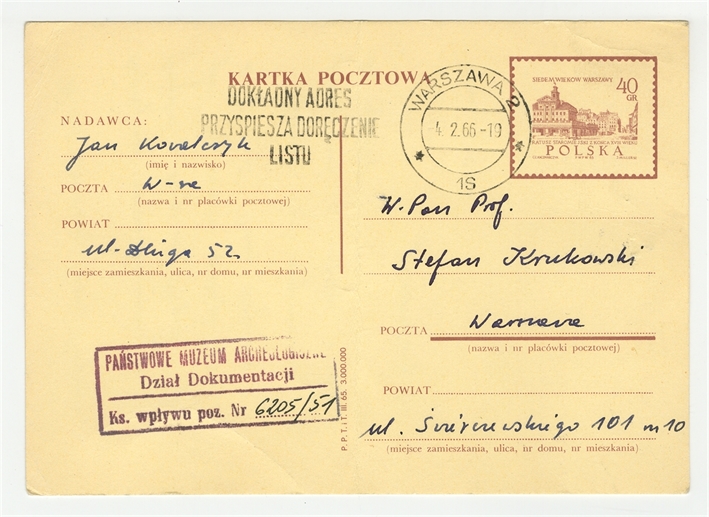 KARTKA POCZTOWA
DOKŁADNY ADRES
PRZYSPIESZA DORĘCZENIE
LISTU
WARSZAWA 2
4. 2. 66 -19
1S
SIEDEM WIEKÓW WARSZAWY
40
GR
RATUSZ STAROMIEJSKI Z KOŃCA XVIII WIEKU
POLSKA
NADAWCA:
Jan Kowalczyk
(imię i nazwisko)
POCZTA W-wa
(nazwa i nr placówki pocztowej)
POWIAT
ul. Długa 52
(miejsce zamieszkania, ulica, nr domu, nr mieszkania)
PAŃSTWOWE MUZEUM ARCHEOLOGICZNE
Dział Dokumentacji
Ks. wpływu poz. Nr 6205/51
P. P. T. i T. III. 65. 3.000.000
W. Pan Prof.
Stefan Krukowski
POCZTA Warszawa
(nazwa i nr placówki pocztowej)
POWIAT
ul. Świerczewskiego 101 m 10
(miejsce zamieszkania, ulica, nr domu, nr mieszkania)